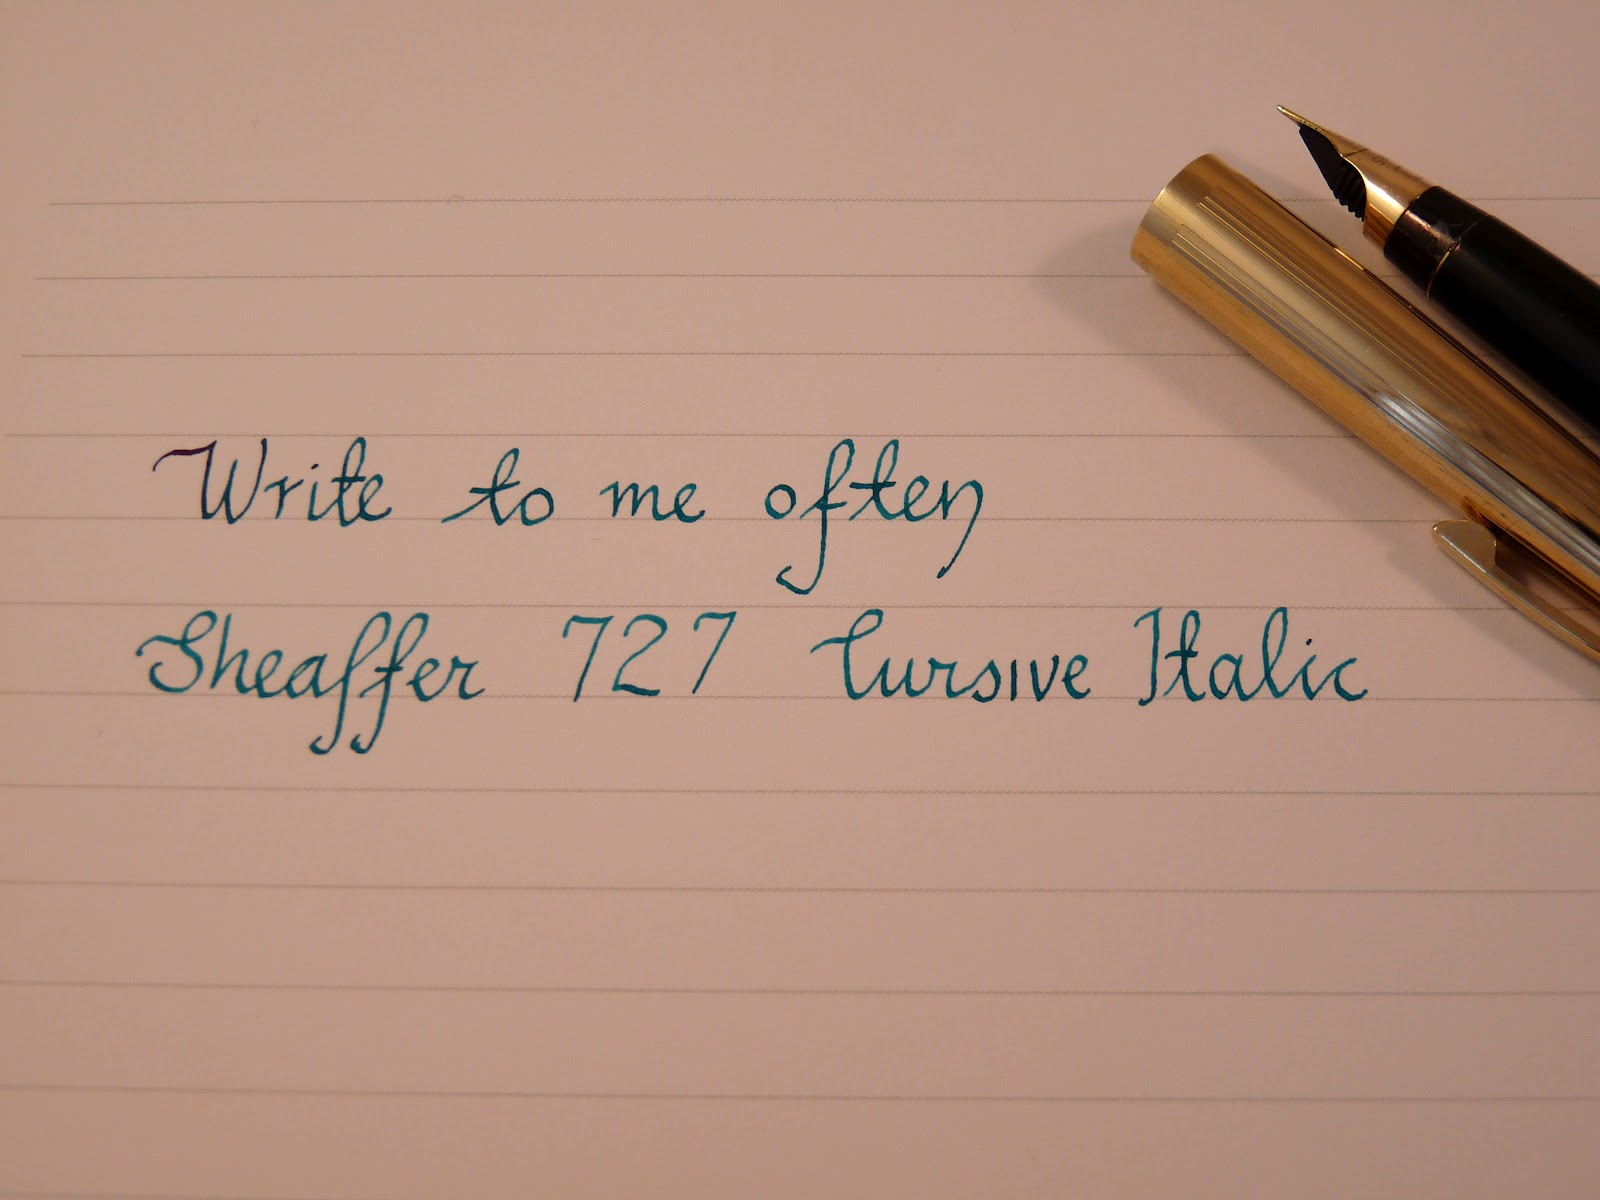 Write to me often
Sheaffer 727 Cursive Italic